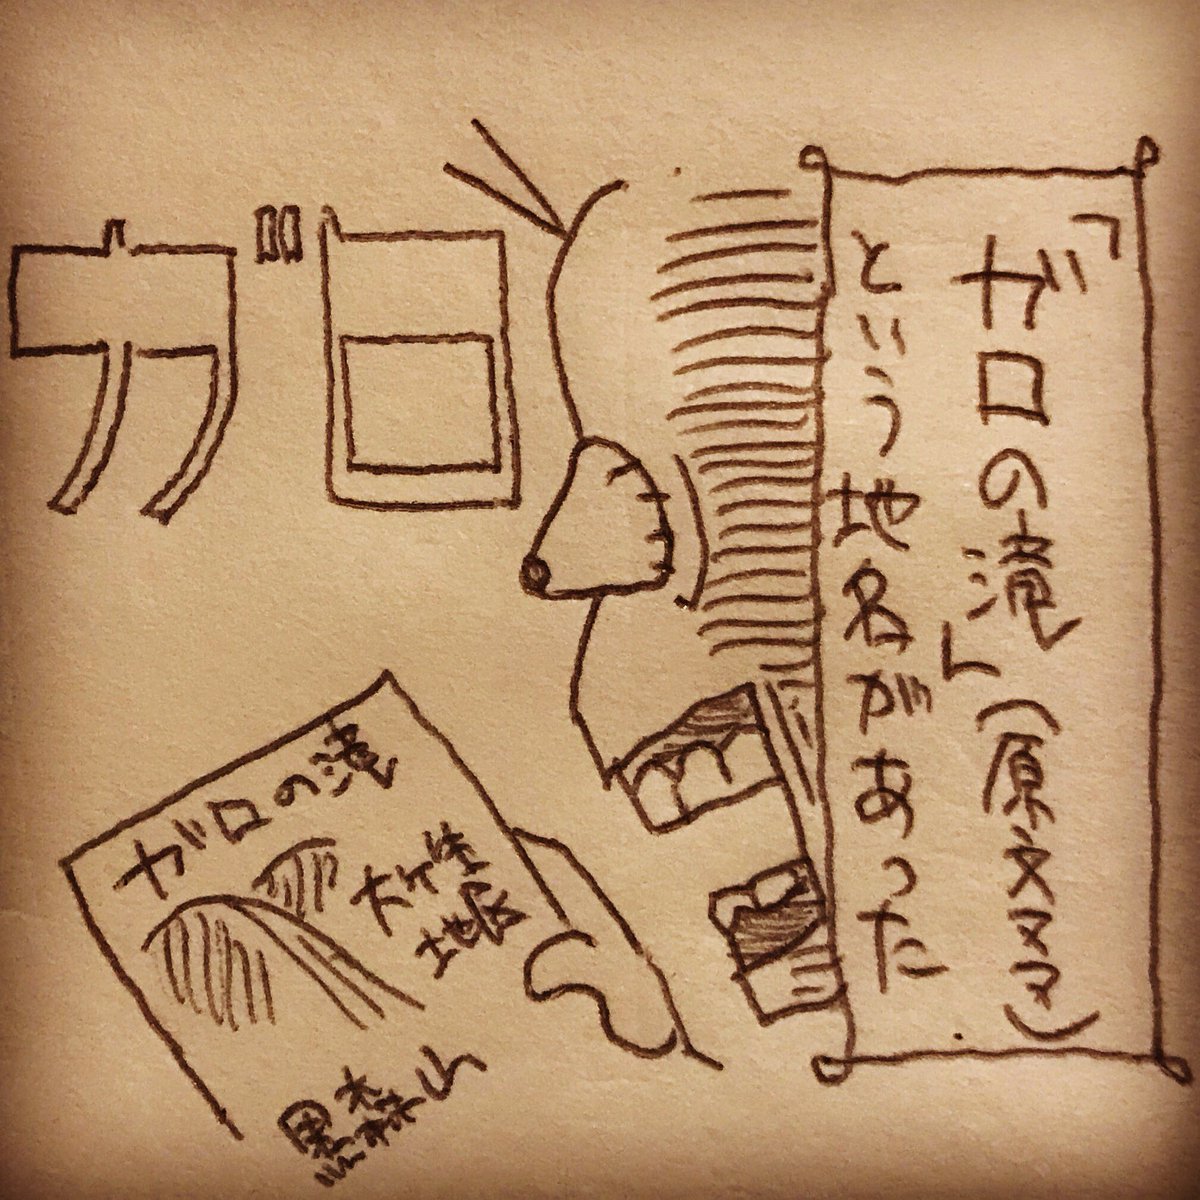 「ガロの滝」(原文ママ)
という地名があった
ガロ
ガロの滝
大ケ生
地区
黒森山